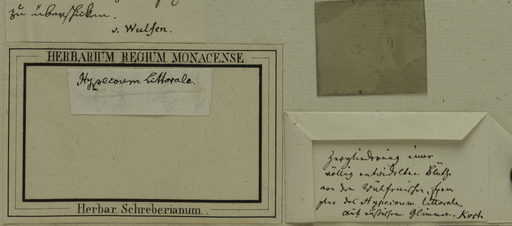 zu überschicken.
v. Wulfen.
HERBARIUM REGIUM MONACENSE.
Hypecoum littorale.
Herbar. Schreberianum.
Zergliederung einer
völlig entwickelten Blüthe
von dem Wulfenischen Exem
plar des Hypecoum littorale.
auf